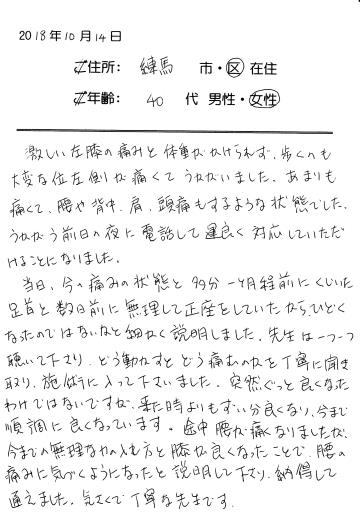 2018年10月14日
ご住所: 練馬 市・区 在住
ご年齢: 40 代 男性・女性
激しい左膝の痛みと体重がかけられず、歩くのも
大変な位左側が痛くてうかがいました。あまりも
痛くて、腰や背中、肩、頭痛もするような状態でした。
うかがう前日の夜に電話して運良く対応していただ
けることになりました。
当日、今の痛みの状態と多分一ヶ月程前にくじいた
足首と数日前に無理して正座をしていたからひどく
なったのではないかなと細かく説明しました。先生は一つ一つ
聴いて下さり、どう動かすとどう痛むのかを丁寧に聞き
取り、施術に入って下さいました。突然ぐっと良くなった
わけではないですが、来た時よりもずい分良くなり、今まで
順調に良くなっています。途中腰が痛くなりましたが、
今までの無理な力の入れ方と膝が良くなったことで、腰の
痛みに気づくようになったと説明して下さり、納得して
通えました。気さくで丁寧な先生です。